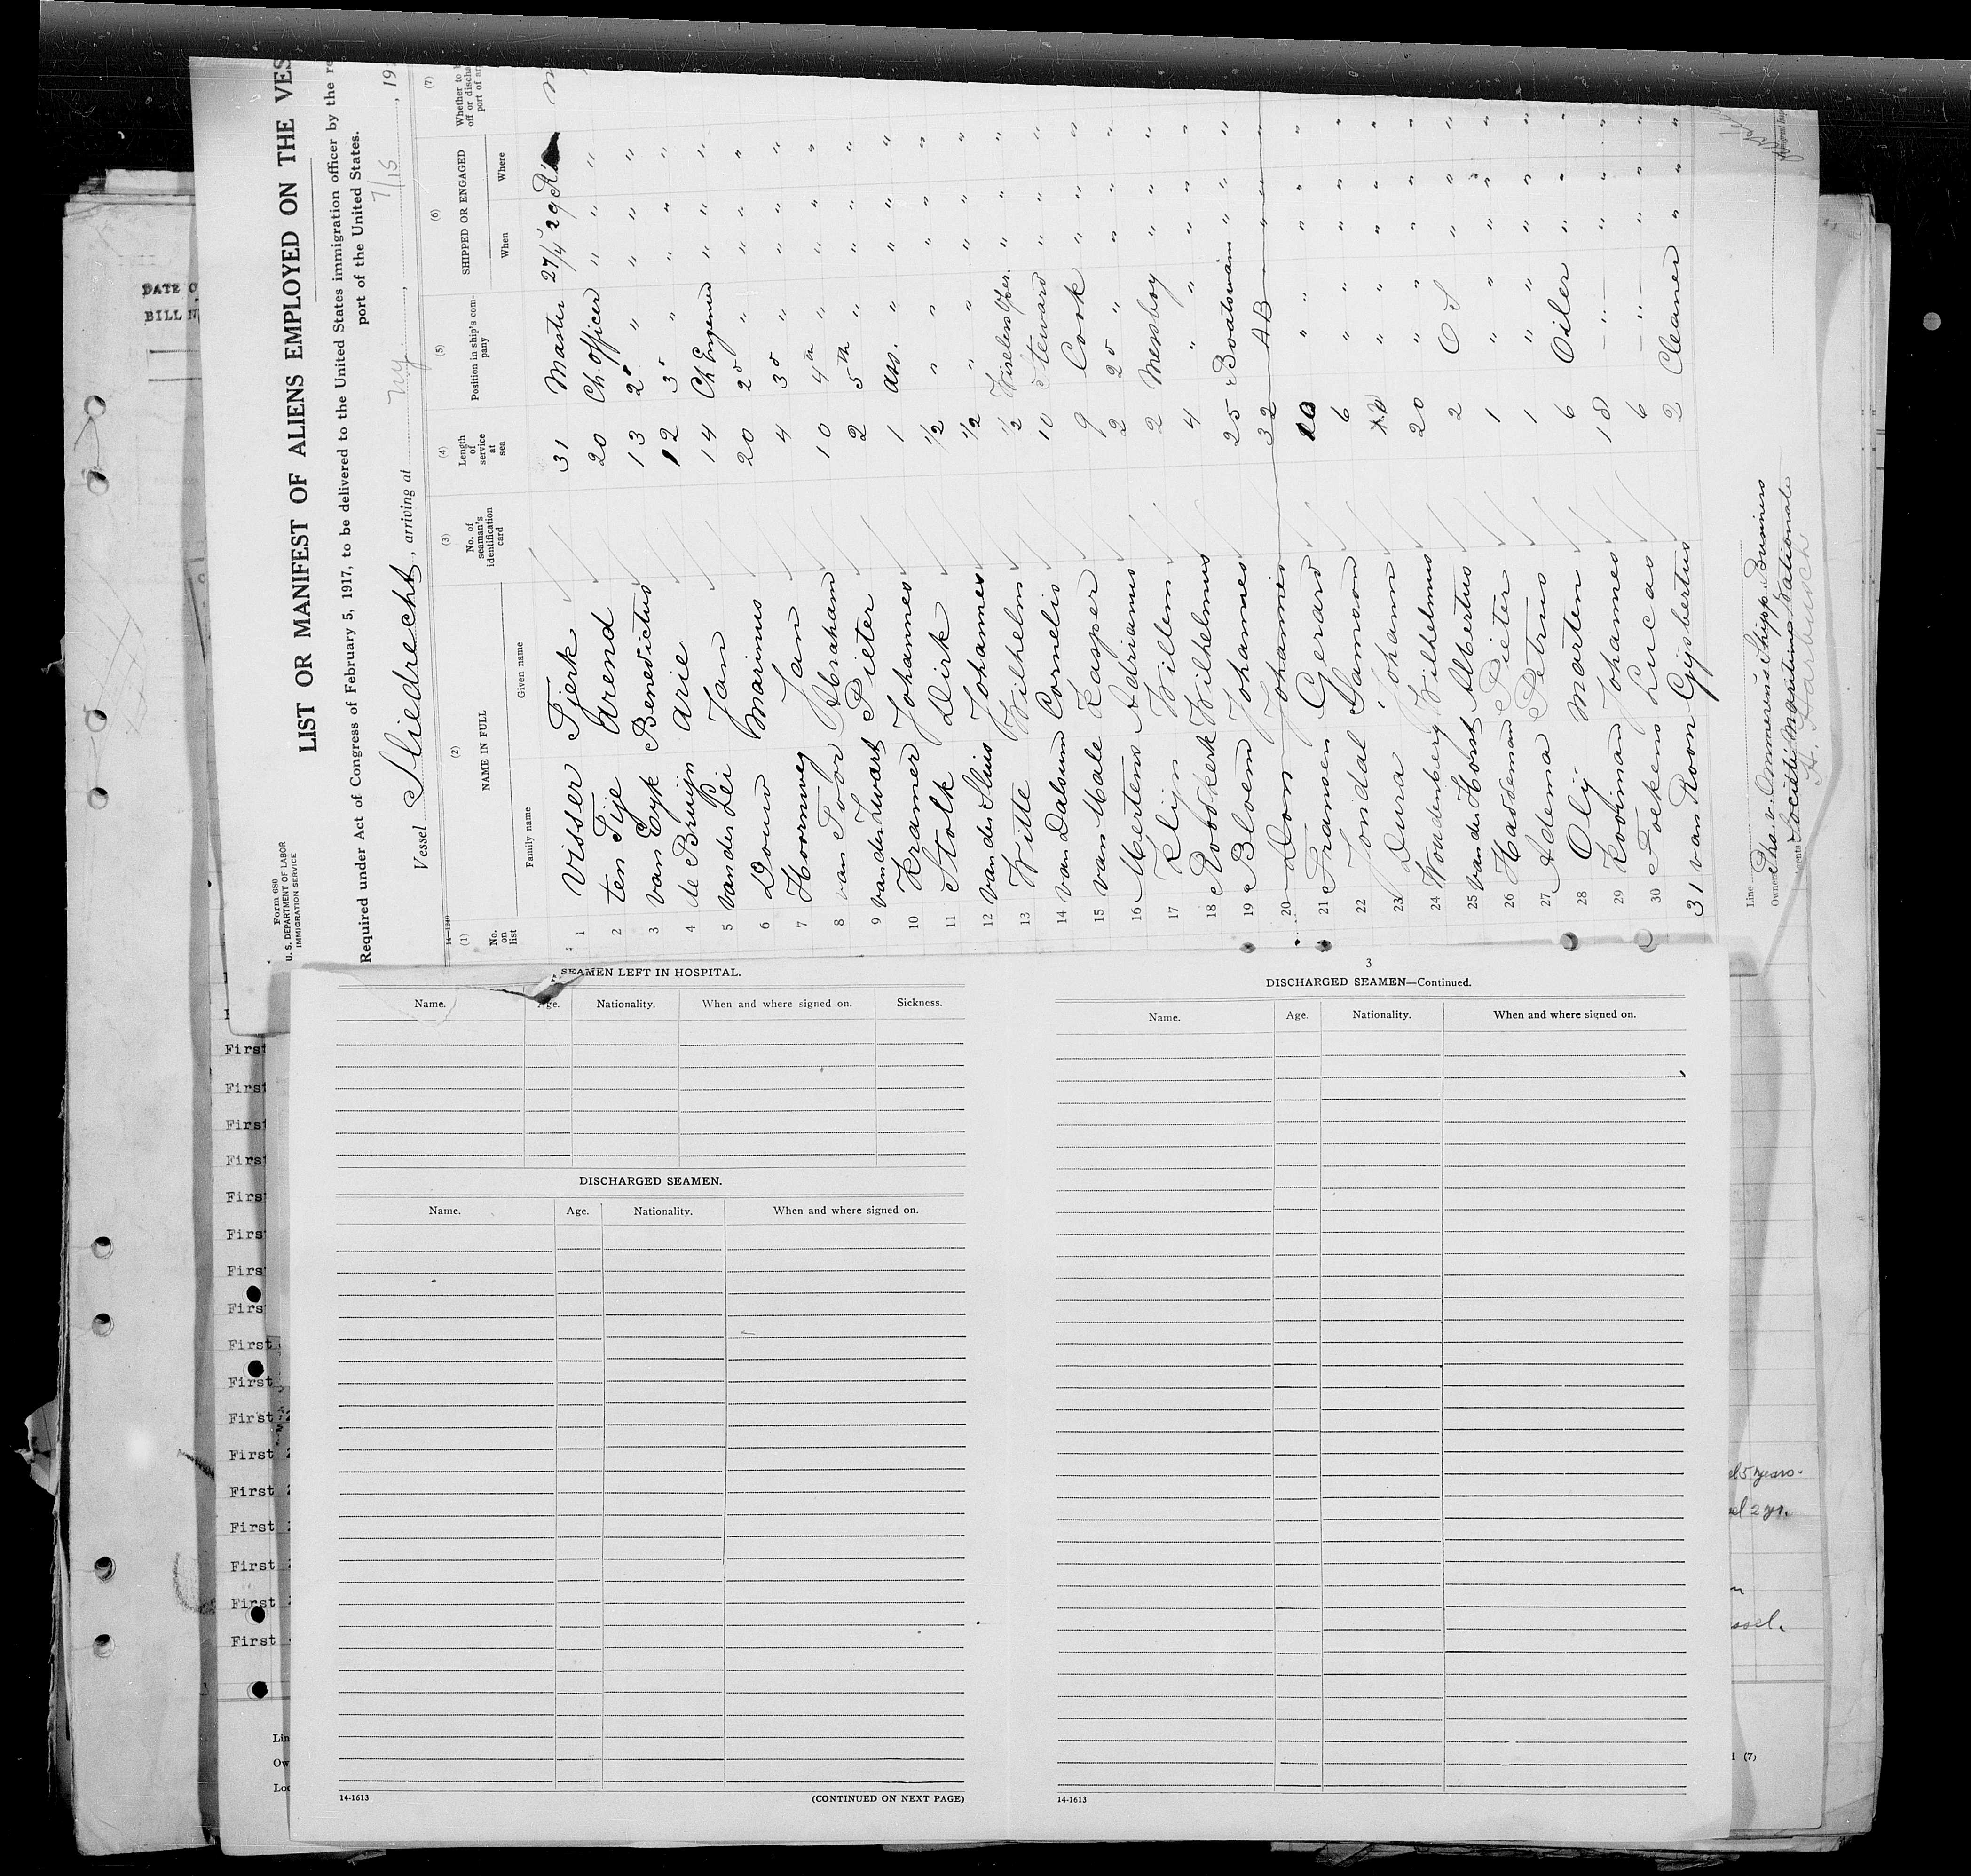 Form 680
U. S. DEPARTMENT OF LABOR
IMMIGRATION SERVICE
LIST OR MANIFEST OF ALIENS EMPLOYED ON THE VES
Required under Act of Congress of February 5, 1917, to be delivered to the United States immigration officer by the re
port of the United States.
Vessel Sliedrecht, arriving at NY, 7/15, 19
14-1240
(1) (2) (3) (4) (5) (6) (7)
No. on list
NAME IN FULL
Family name Given name
No. of seaman's identification card
Length of service at sea
Position in ship's company
SHIPPED OR ENGAGED
When Where
Whether to
off or discha
port of ar
1 Visser Tjerk 31 Master 27/4 29
2 ten Tije Arend 20 Ch. Officer " "
3 van Eyk Benedictus 13 2e " " "
4 de Bruijn Arie 12 3e " " "
5 van der Lei Jan 14 Ch Engeneer " "
6 Douw Marinus 20 2e " " "
7 Hoornweg Jan 4 3e " " "
8 van Toor Abraham 10 4th " " "
9 van der Zwart Pieter 2 5th " " "
10 Kramer Johannes 1 ass. " "
11 Stolk Dirk 1/2 " " "
12 van der Sluis Johannes 1/2 " " "
13 Witte Wilhelm 1/2 Wireless Oper. " "
14 van Dalsum Cornelis 10 Steward " "
15 van Male Kasper 9 Cook " "
16 Mertens Adrianus 2 2e " " "
17 Klijn Willem 2 Messboy " "
18 Robbkerk Wilhelmus 4 " " "
19 Bloem Johannes 25 Boatswain " "
20 Don Johannes 32 AB " "
21 Fransen Gerard 10 " " "
22 Jondal Samson 6 " " "
23 Dura Johann " " "
24 Woudenberg Wilhelmus 20 " " "
25 van der Horst Albertus 2 O S " "
26 Hasseman Pieter 1 " " "
27 Adema Petrus 1 " " "
28 Olij Marten 6 Oiler " "
29 Kooiman Johannes 18 — " — " "
30 Foekens Lucas 6 — " — " "
31 van Roon Gijsbertus 2 Cleaner " "
Line
Owner Phs. v. Ommeren's Shipp. Business
Agents Société Maritime Nationale
DATE O
BILL N
SEAMEN LEFT IN HOSPITAL.
Name. Age. Nationality. When and where signed on. Sickness.
DISCHARGED SEAMEN.
Name. Age. Nationality. When and where signed on.
14-1613 (CONTINUED ON NEXT PAGE)
3
DISCHARGED SEAMEN—Continued.
Name. Age. Nationality. When and where signed on.
14-1613
First
First
First
First
First
First
First
First
First
First
First
First
First
First
First
First
First
Lin
Ow
Loc
el 5 years.
el 2 yr.
ssel.
(7)